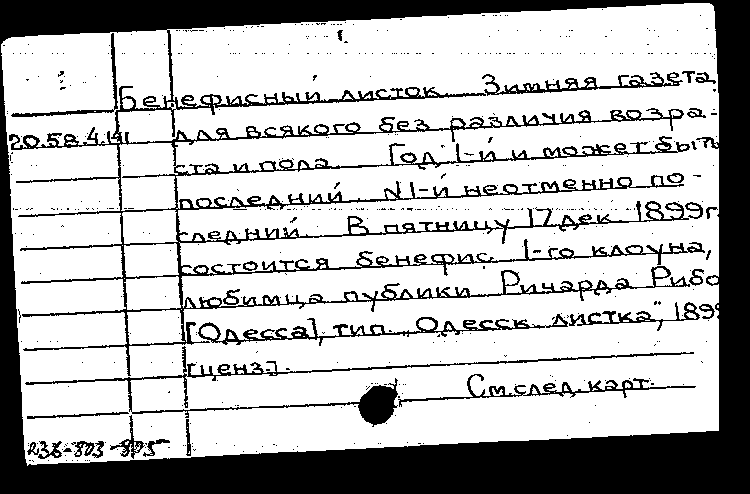 Бенефисный листок. Зимняя газета
20.58.4.141 для всякого без различия возра-
ста и пола. Год 1-й и может быть
последний. N1-й неотменно по-
следний. В пятницу 17 дек. 1899 г.
состоится бенефис 1-го клоуна,
любимца публики Ричарда Рибо
[Одесса], тип. "Одесск. листка", 189
[ценз.].
См. след. карт.